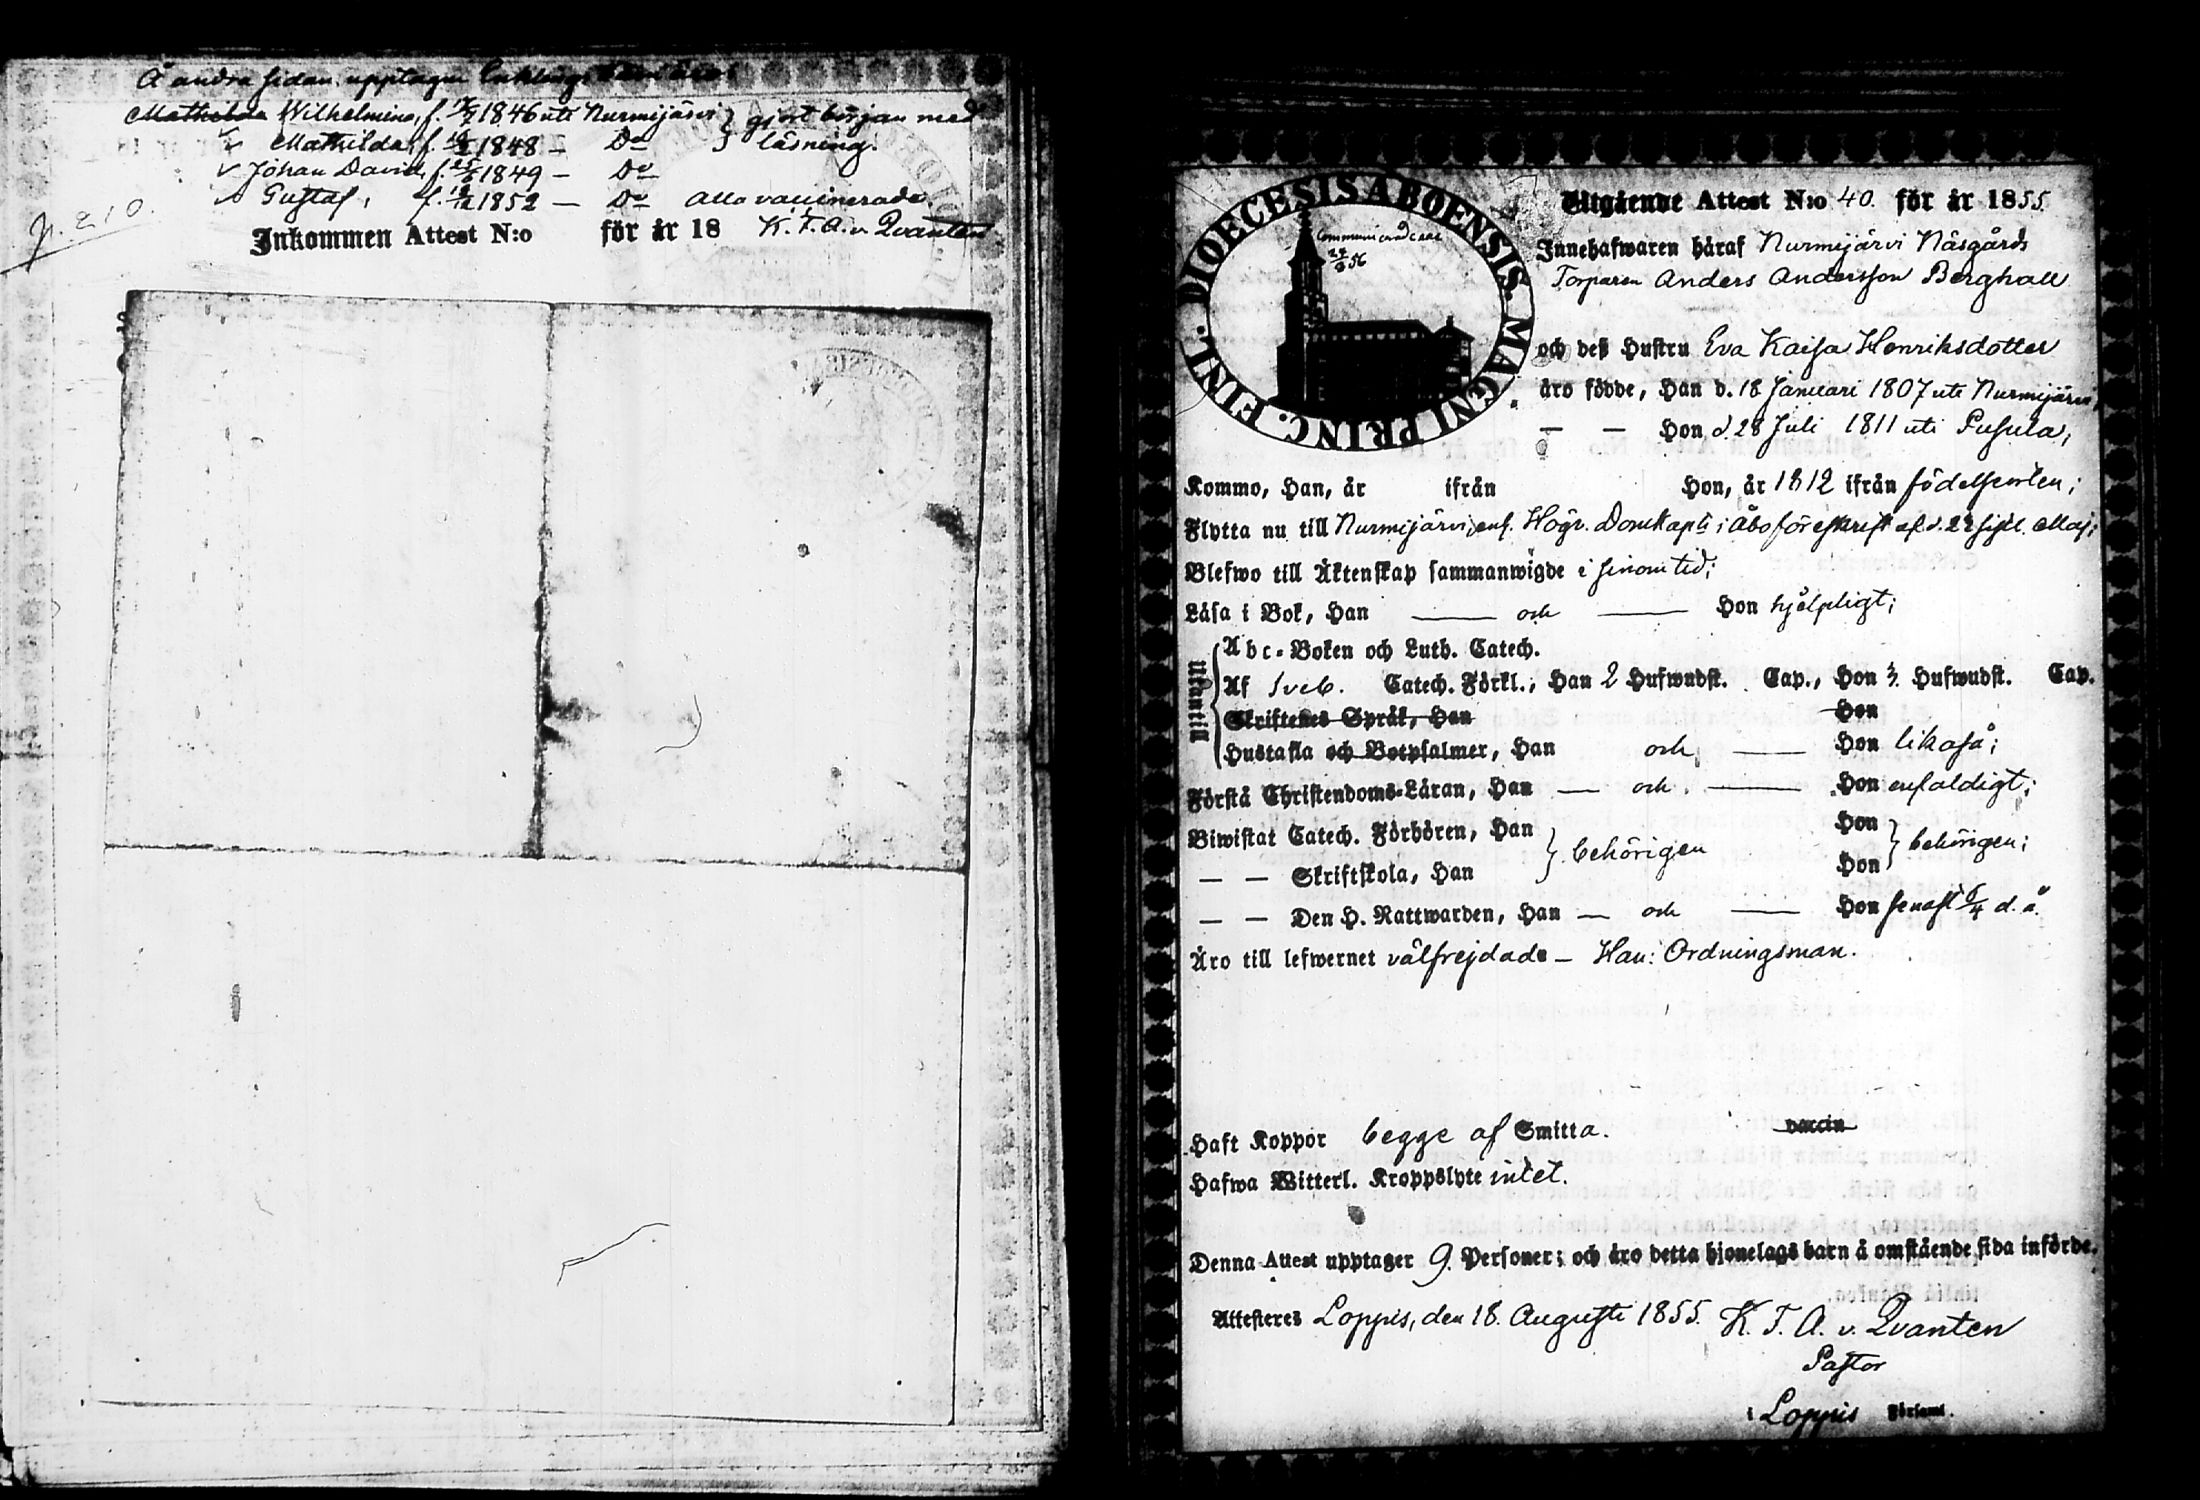 Å andra sidan upptagne Enklings barn äro:
Mathilda Wilhelmina, f. 1846 uti Nurmijärvi } gjort början med
Mathilda, f. 1848 — Do } läsning.
Johan David, f. 25/6 1849 — Do
Gustaf, f. 1852 — Do alla vaccinerade.
p. 210.
Inkommen Attest N:o för år 18 K. T. A. v. Qvanten
DIOECESIS ABOENSIS. MAGNI PRINC. FINL.
56
Utgående Attest N:o 40. för år 1855.
Innehafwaren häraf Nurmijärvi Näsgårds
Torparen Anders Andersson Berghall
och deß Hustru Eva Kaisa Henriksdotter
äro födde, Han d. 18 Januari 1807 uti Nurmijärvi,
— — Hon d. 28 Juli 1811 uti Pusula;
Kommo, Han, år ifrån Hon, år 1812 ifrån födelseorten;
Flytta nu till Nurmijärvi, enl. Högv. Domkapts i Åbo föreskrift af d. 22 sistl. Maj;
Blefwo till Äktenskap sammanwigde i sinom tid;
Läsa i Bok, Han — och — Hon hjelpligt;
Utantill
Abc-Boken och Luth. Catech.
Af Sveb. Catech. Förkl., Han 2 Hufwudst. Cap., Hon 3. Hufwudst. Cap.
Skriftenes Språk, Han Hon
Hustafla och Botpsalmer, Han och — Hon likaså;
Förstå Christendoms-Läran, Han — och — Hon enfaldigt;
Biwistat Catech. Förhören, Han } behörigen Hon } behörigen;
— — Skriftskola, Han Hon
— — Den H. Nattwarden, Han — och — Hon senast 6/4 d. å.
Äro till lefwernet välfrejdade — Han: Ordningsman.
Haft Koppor begge af Smitta. vaccin
Hafwa Witterl. Kroppslyte intet.
Denna Attest upptager 9. Personer; och äro detta hjonelags barn å omstående sida införde.
Attesteres Loppis, den 18. Augusti 1855. K. T. A. v. Qvanten
Pastor
i Loppis Församl.